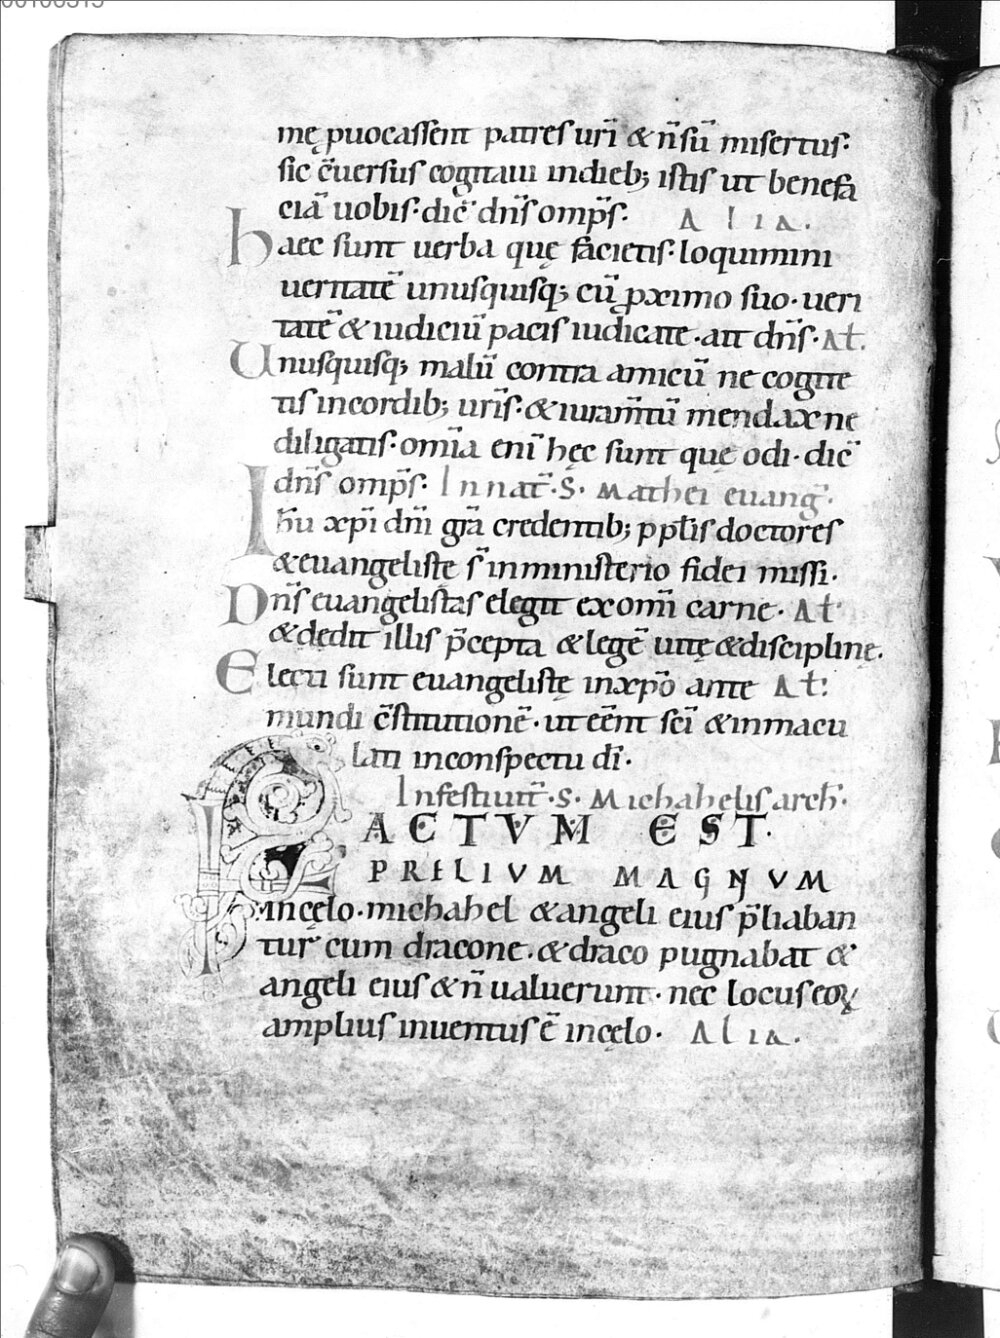 00106515
mę puocassent patres urī & n̄ sū misertus·
sic c̄uersus cogitaui indieb; istis ut benefa
ciā uobis· dic̄ dn̄s omp̄s· Alia·
haec sunt uerba quę facietis· loquimini
ueritatē unusquisq; cū pximo suo· ueri
tatē & iudiciū pacis iudicate· ait dn̄s· At.
Unusquisq; malū contra amicū ne cogite
tis incordib; ur̄is· & iuram̄tū mendax ne
diligatis· om̄ia enī hęc sunt quę odi· dic̄
dn̄s omp̄s· In nat̄· S̄· Mathei euanḡ·
Ih̄u xp̄i dn̄i gr̄a credentib; p pl̄is doctores
& euangelistę s̄ in ministerio fidei missi·
Dn̄s euangelistas elegit ex om̄i carne· At
& dędit illis p̄cepta & legē uitę & disciplinę.
Electi sunt euangelistę in xp̄o ante At:
mundi c̄stitutionē· ut eēnt sc̄i & inmacu
lati in conspectu dī·
In festiuit̄· S· Michahelis arch̄·
FACTVM EST·
PRELIVM MAGNVM
in cęlo· michahel & angeli eius p̄liaban
tur cum dracone· & draco pugnabat &
angeli eius & n̄ ualuerunt· nec locus eoꝝ
amplius inuentus ē in cęlo· Alia·